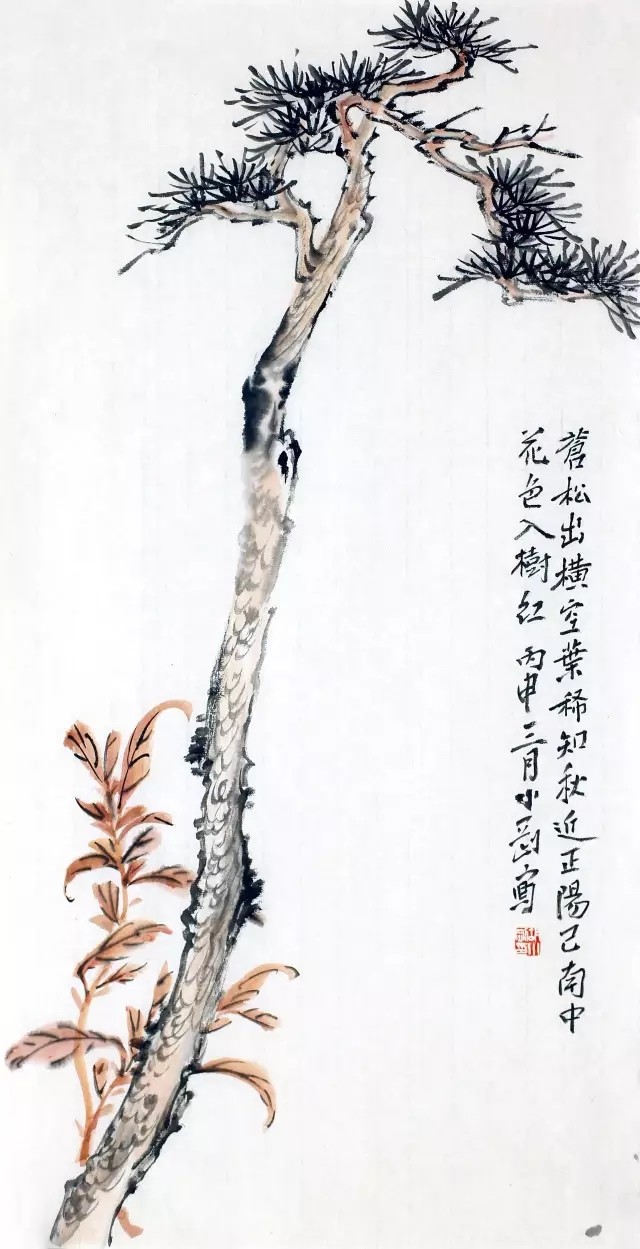 蒼松出橫空葉稀知秋近正陽已南中
花色入樹紅 丙申三月小写